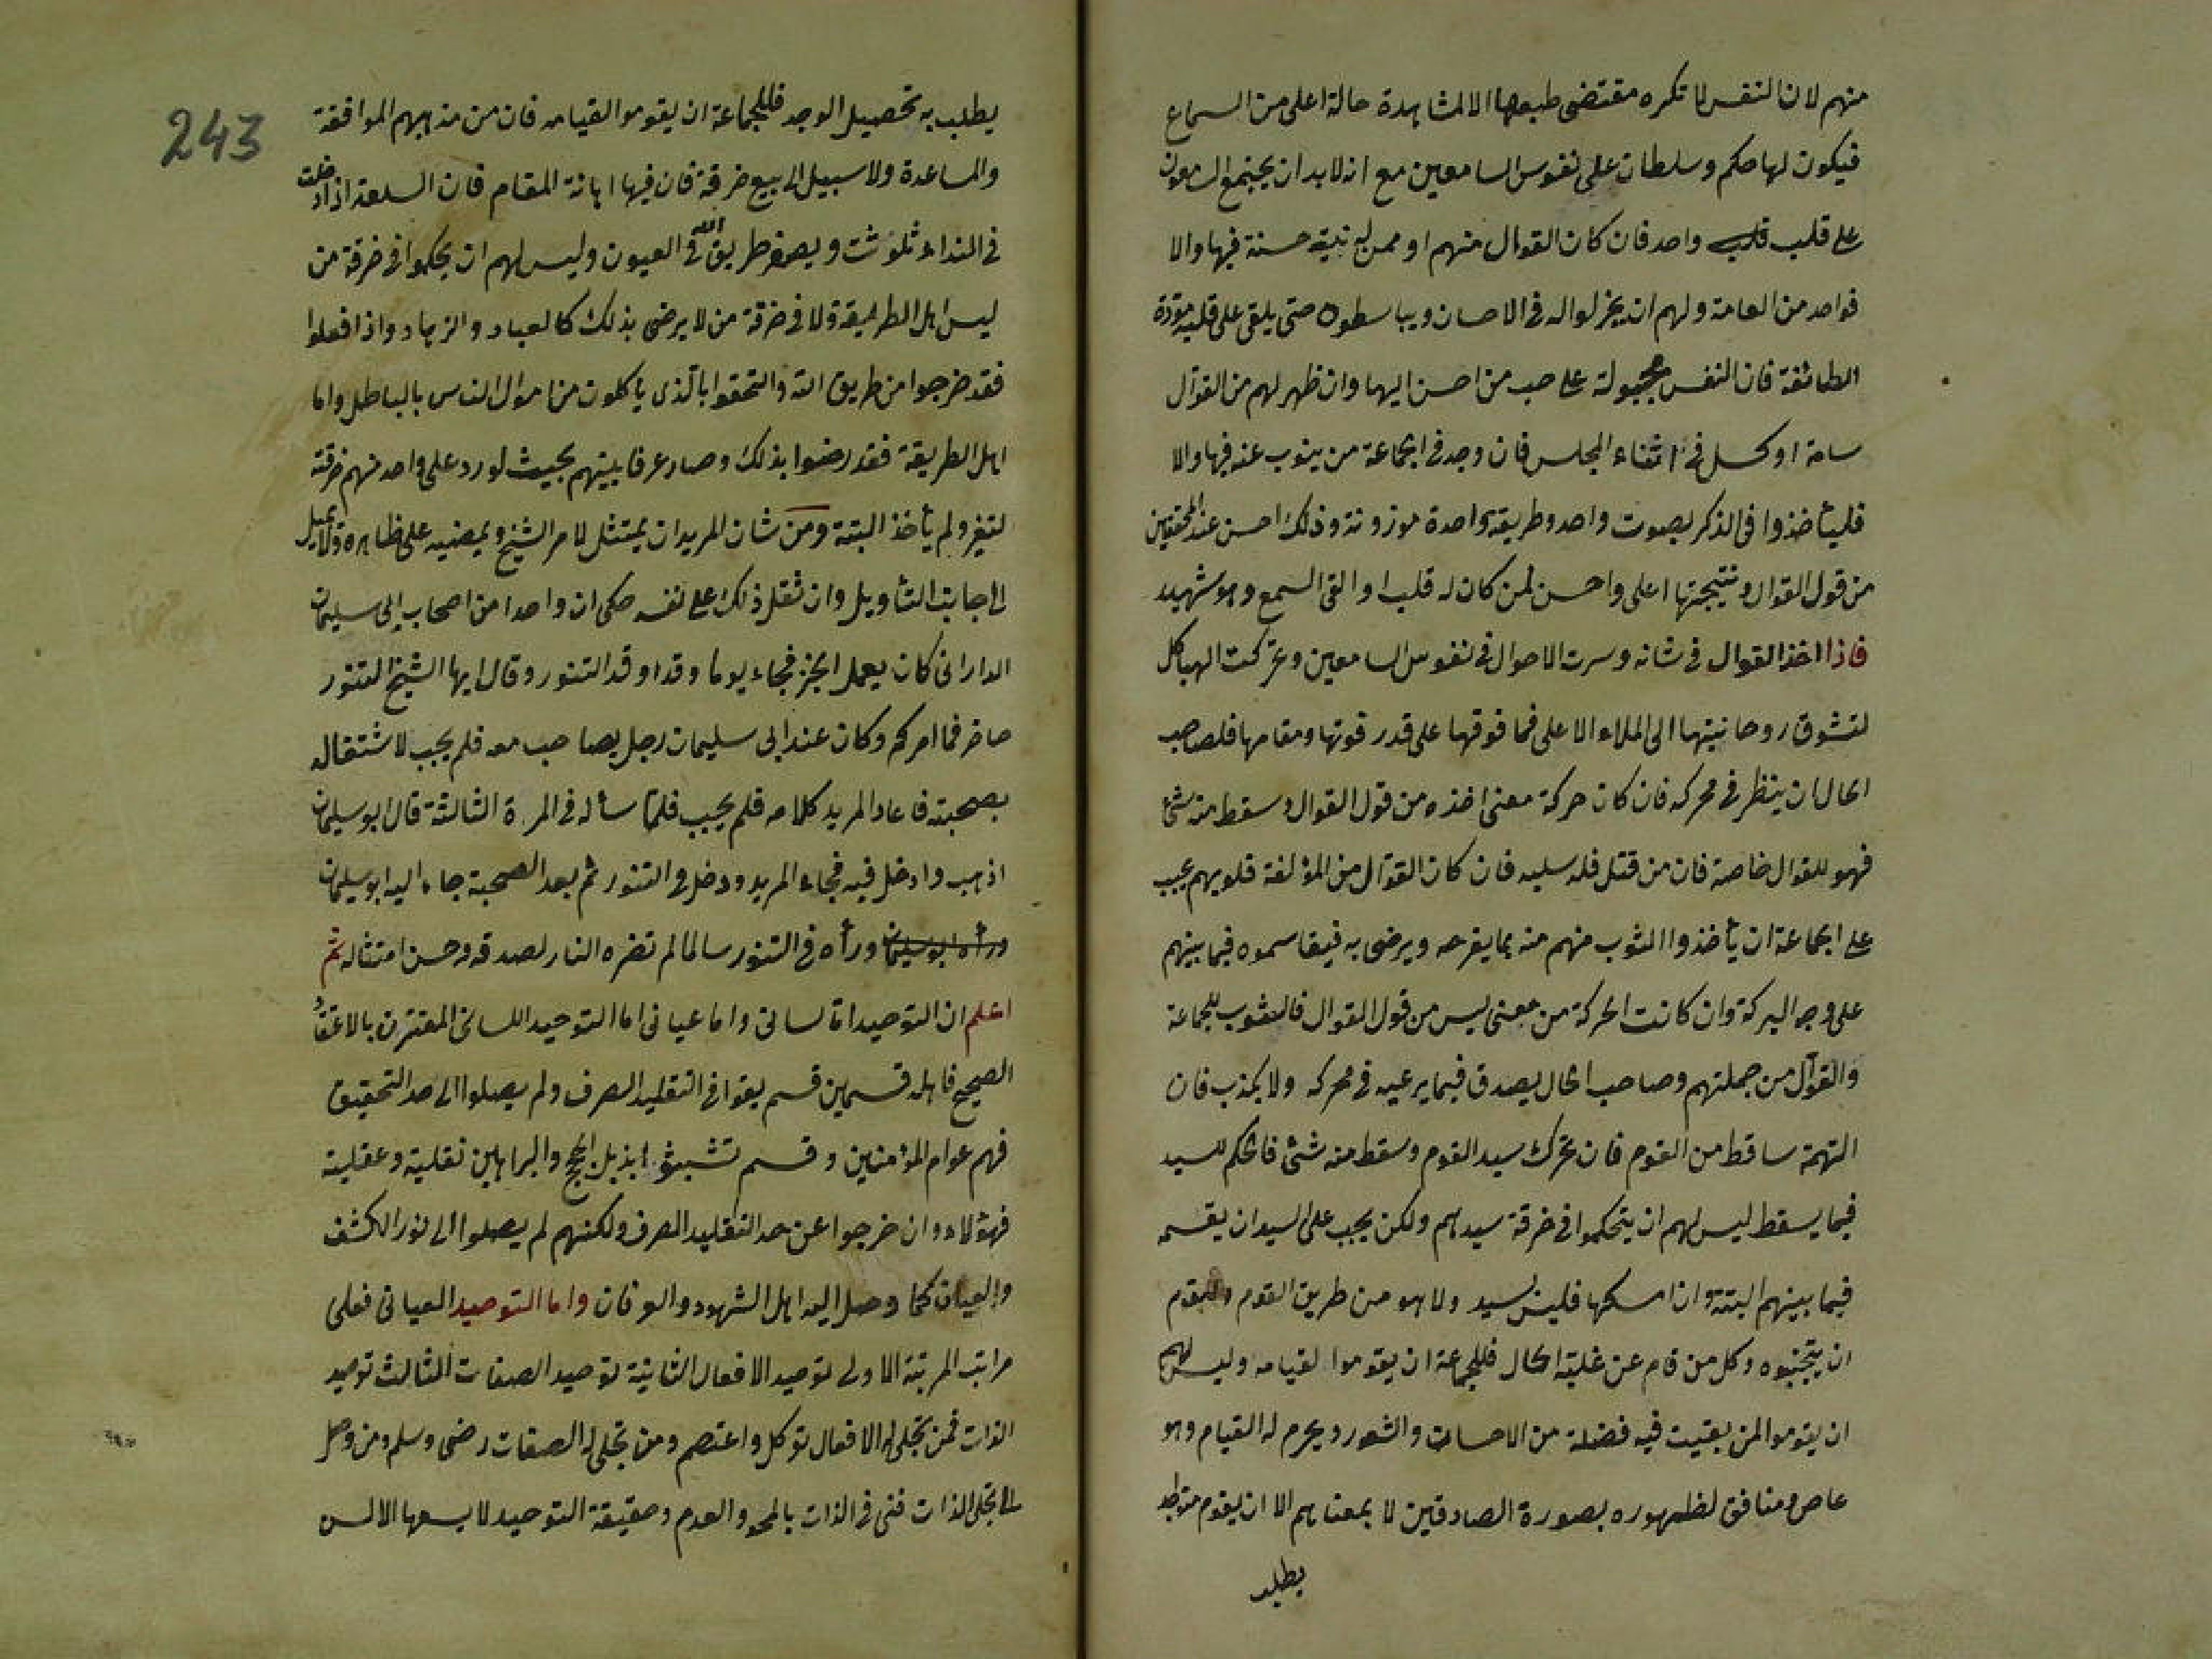 منهم لان النفس لا تكره مقتضى طبعها الا لمشاهدة حالة اعلى من السماع
فيكون لها حكم وسلطان على نفوس السامعين مع انه لا بد ان يجتمع السامعون
على قلب واحد فان كان القوال منهم او ممن له نية حسنة فيها والا
فواحد من العامة ولهم ان يجزلوا له فى الاحسان ويباسطوه حتى يلقى على قلبه مودة
الطائفة فان النفس مجبولة على حب من احسن اليها وان ظهر لهم من القوّال
سامة او كسل فى اثناء المجلس فان وجد فى الجماعة من ينوب عنه فيها والا
فليأخذوا فى الذكر بصوت واحد وطريقة واحدة موزونة وذلك احسن عند المحققين
من قول القوال ونتيجتها اعلى واحسن لمن كان له قلب او القى السمع وهو شهيد
فاذا اخذ القوال فى شانه وسرت الاحوال فى نفوس السامعين وتحركت الهياكل
لتشوق روحانيتها الى الملاء الاعلى فما فوقها على قدر قوتها ومقامها فلصاحب
الحال ان ينظر فى محركه فان كان حركة معنى اخذه من قول القوال وسقط منه شئ
فهو للقوال خاصة فان من قتل فله سلبه فان كان القوّال من المؤلفة قلوبهم يجب
على الجماعة ان يأخذوا الثوب منهم منه بما يفرحه ويرضى به فيقاسموه فيما بينهم
على وجه البركة وان كانت الحركة من معنى ليس من قول القوال فالثوب للجماعة
والقوّال من جملتهم وصاحب الحال يصدق فيما يدعيه فى محركه ولا يكذب فان
التهمة ساقط من القوم فان تحرك سيد القوم وسقط منه شئ فالحكم للسيد
فيما يسقط ليس لهم ان يتحكموا فى خرقة سيدهم ولكن يجب على السيد ان يقسمه
فيما بينهم البتة وان امسكها فليس لسيد ولا هو من طريق القوم وللقوم
ان يتجنبوه وكل من قام عن غلبة الحال فللجماعة ان يقوموا لقيامه وليس لهم
ان يقوموا لمن بقيت فيه فضلة من الاحساس والشعور ويحرم له القيام وهو
عاص ومنافق لظهوره بصورة الصادقين لا بمعناهم الا ان يقوم متواجد
يطلب
243
يطلب به تحصيل الوجد فللجماعة ان يقوموا لقيامه فان من مذهبهم الموافقة
والمساعدة ولا سبيل الى بيع خرقة فان فيها اهانة المقام فان السلعة اذا دخلت
فى النداء تلوثت ويصغر طريق الله فى العيون وليس لهم ان يحكموا فى خرقة من
ليس اهل الطريقة ولا فى خرقة من لا يرضى بذلك كالعباد والزهاد واذا فعلوا
فقد خرجوا من طريق الله والتحقوا بالّذى ياكلون من اموال الناس بالباطل واما
اهل الطريقة فقد رضوا بذلك وصار عرفا بينهم بحيث لو رد على واحد منهم خرقة
لتغير ولم يأخذ البتة ومن شان المريد ان يمتثل لامر الشيخ ويمضيه على ظاهره ولا يميل
الى جانب التأويل وان ثقل ذلك على نفسه حكى ان واحدا من اصحاب ابى سليمان
الدارانى كان يعمل الخبز فجاء يوما وقد اوقد التنور وقال ايها الشيخ التنور
حاضر فما امركم وكان عند ابى سليمان رجل يصاحب معه فلم يجب لاشتغاله
بصحبته فاعاد المريد كلامه فلم يجب فلمّا سأله فى المرة الثالثة قال ابو سليمان
اذهب وادخل فيه فجاء المريد ودخل فى التنور ثم بعد الصحبة جاء اليه ابو سليمان
ورأه ابو سليمان ورأه فى التنور سالما لم تضره النار لصدقه وحسن امتثاله ثم
اعلم ان التوحيد امّا لسانى واما عيانى اما التوحيد اللسانى المقترن بالاعتقاد
الصحيح فاهله قسمين قسم بقوا فى التقليد الصرف ولم يصلوا الى حد التحقيق
فهم عوام المؤمنين وقسم تشبثوا بذيل الحجج والبراهين نقلية وعقلية
فهؤلاء وان خرجوا عن حد التقليد الصرف ولكنهم لم يصلوا الى نور الكشف
والعيان كما وصل اليه اهل الشهود والعرفان واما التوحيد العيانى فعلى
مراتب المرتبة الاولى توحيد الافعال الثانية توحيد الصفات الثالث توحيد
الذات فمن تجلى له الافعال توكل واعتصم ومن تجلى له الصفات رضى وسلم ومن وصل
الى تجلى الذات فنى فى الذات بالمحو والعدم وحقيقة التوحيد لا يسعها الالسن